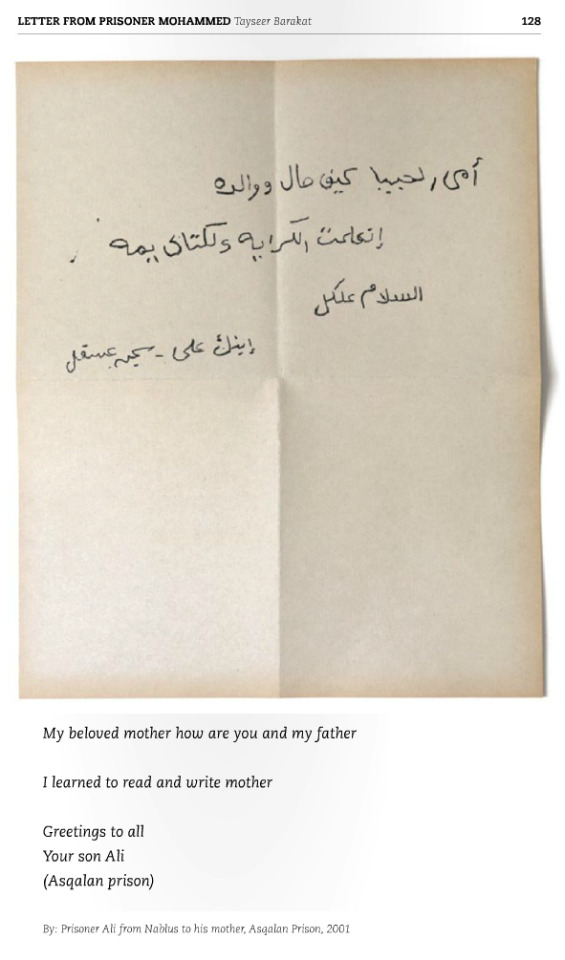 LETTER FROM PRISONER MOHAMMED Tayseer Barakat 128
أمى الحبيبا كيف حال ووالده
إتعلمت الكرايه ولكتاى يمه
السلام علكل
إبنك على - سجن عسقل
My beloved mother how are you and my father
I learned to read and write mother
Greetings to all
Your son Ali
(Asqalan prison)
By: Prisoner Ali from Nablus to his mother, Asqalan Prison, 2001